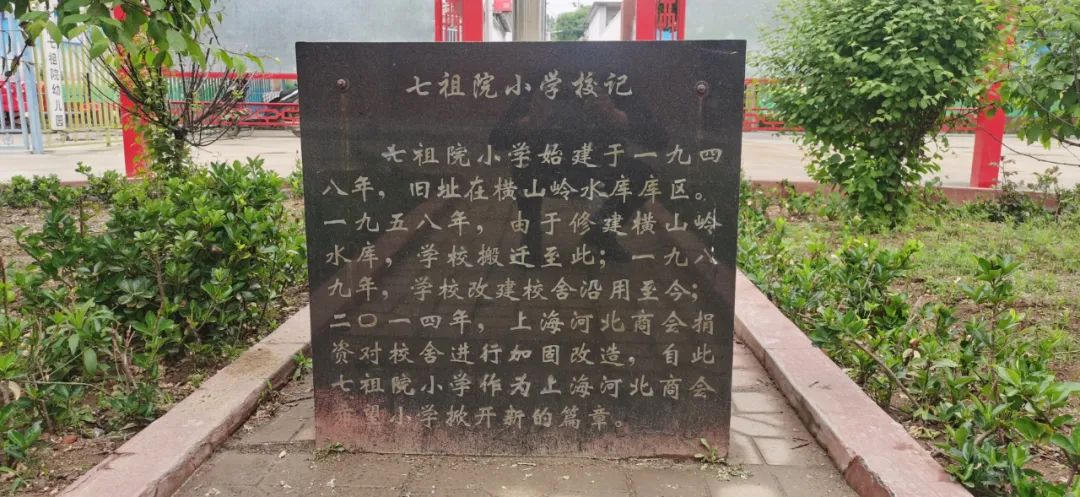 七祖院小学校记
七祖院小学始建于一九四
八年，旧址在横山岭水库库区。
一九五八年，由于修建横山岭
水库，学校搬迁至此；一九八
九年，学校改建校舍沿用至今；
二〇一四年，上海河北商会捐
资对校舍进行加固改造，自此
七祖院小学作为上海河北商会
希望小学掀开新的篇章。
七祖院幼儿园